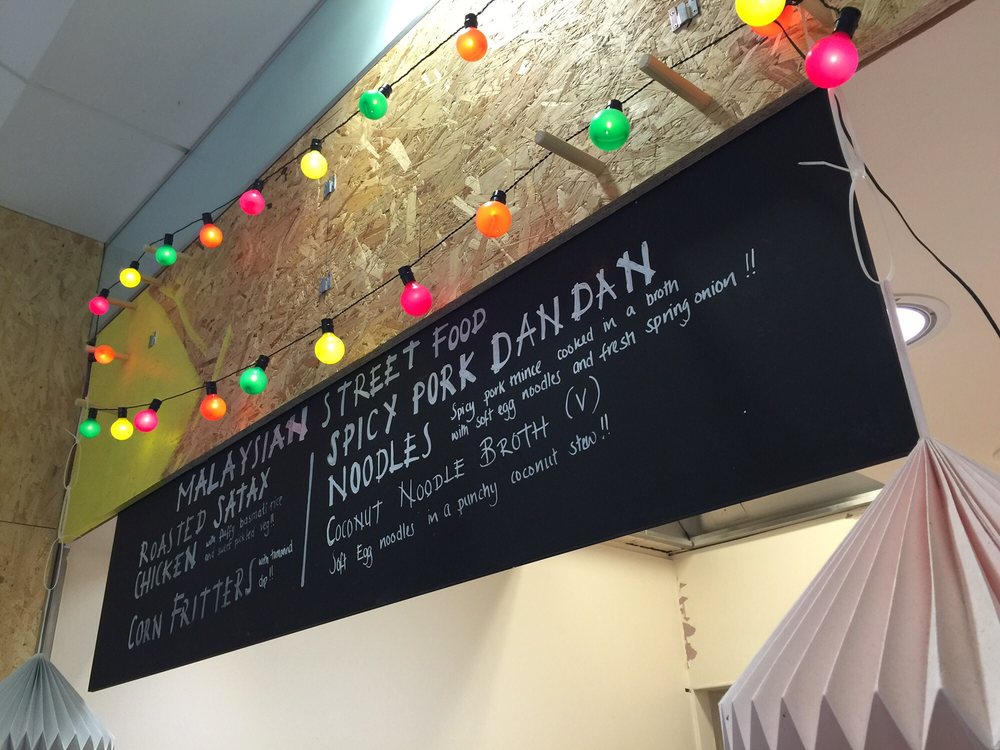 MALAYSIAN STREET FOOD
ROASTED SATAY
CHICKEN with fluffy basmati rice
and sweet pickled veg!!
CORN FRITTERS with tamarind
dip!!
SPICY PORK DAN DAN
NOODLES Spicy pork mince cooked in a broth
with soft egg noodles and fresh spring onion!!
COCONUT NOODLE BROTH (V)
Soft Egg noodles in a punchy coconut stew!!